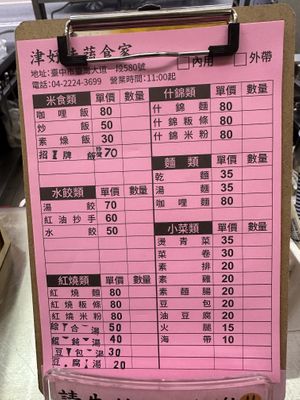 津好味蔬食室
□內用 □外帶
地址:臺中市臺灣大道一段580號
電話:04-2224-3699 營業時間:11:00起
米食類 單價 數量
咖哩飯 80
炒飯 50
素燥飯 30
招牌飯 70
什錦類 單價 數量
什錦麵 80
什錦粄條 80
什錦米粉 80
麵類 單價 數量
乾麵 35
湯麵 35
咖哩麵 80
水餃類 單價 數量
湯餃 70
紅油抄手 60
水餃 50
小菜類 單價 數量
燙青菜 35
菜卷 30
素排 20
素雞 20
素麵腸 20
豆包 20
油豆腐 20
火腿 15
海帶 10
紅燒類 單價 數量
紅燒麵 80
紅燒粄條 80
紅燒米粉 80
綜合湯 50
餛飩湯 40
豆包湯 30
豆腐湯 20